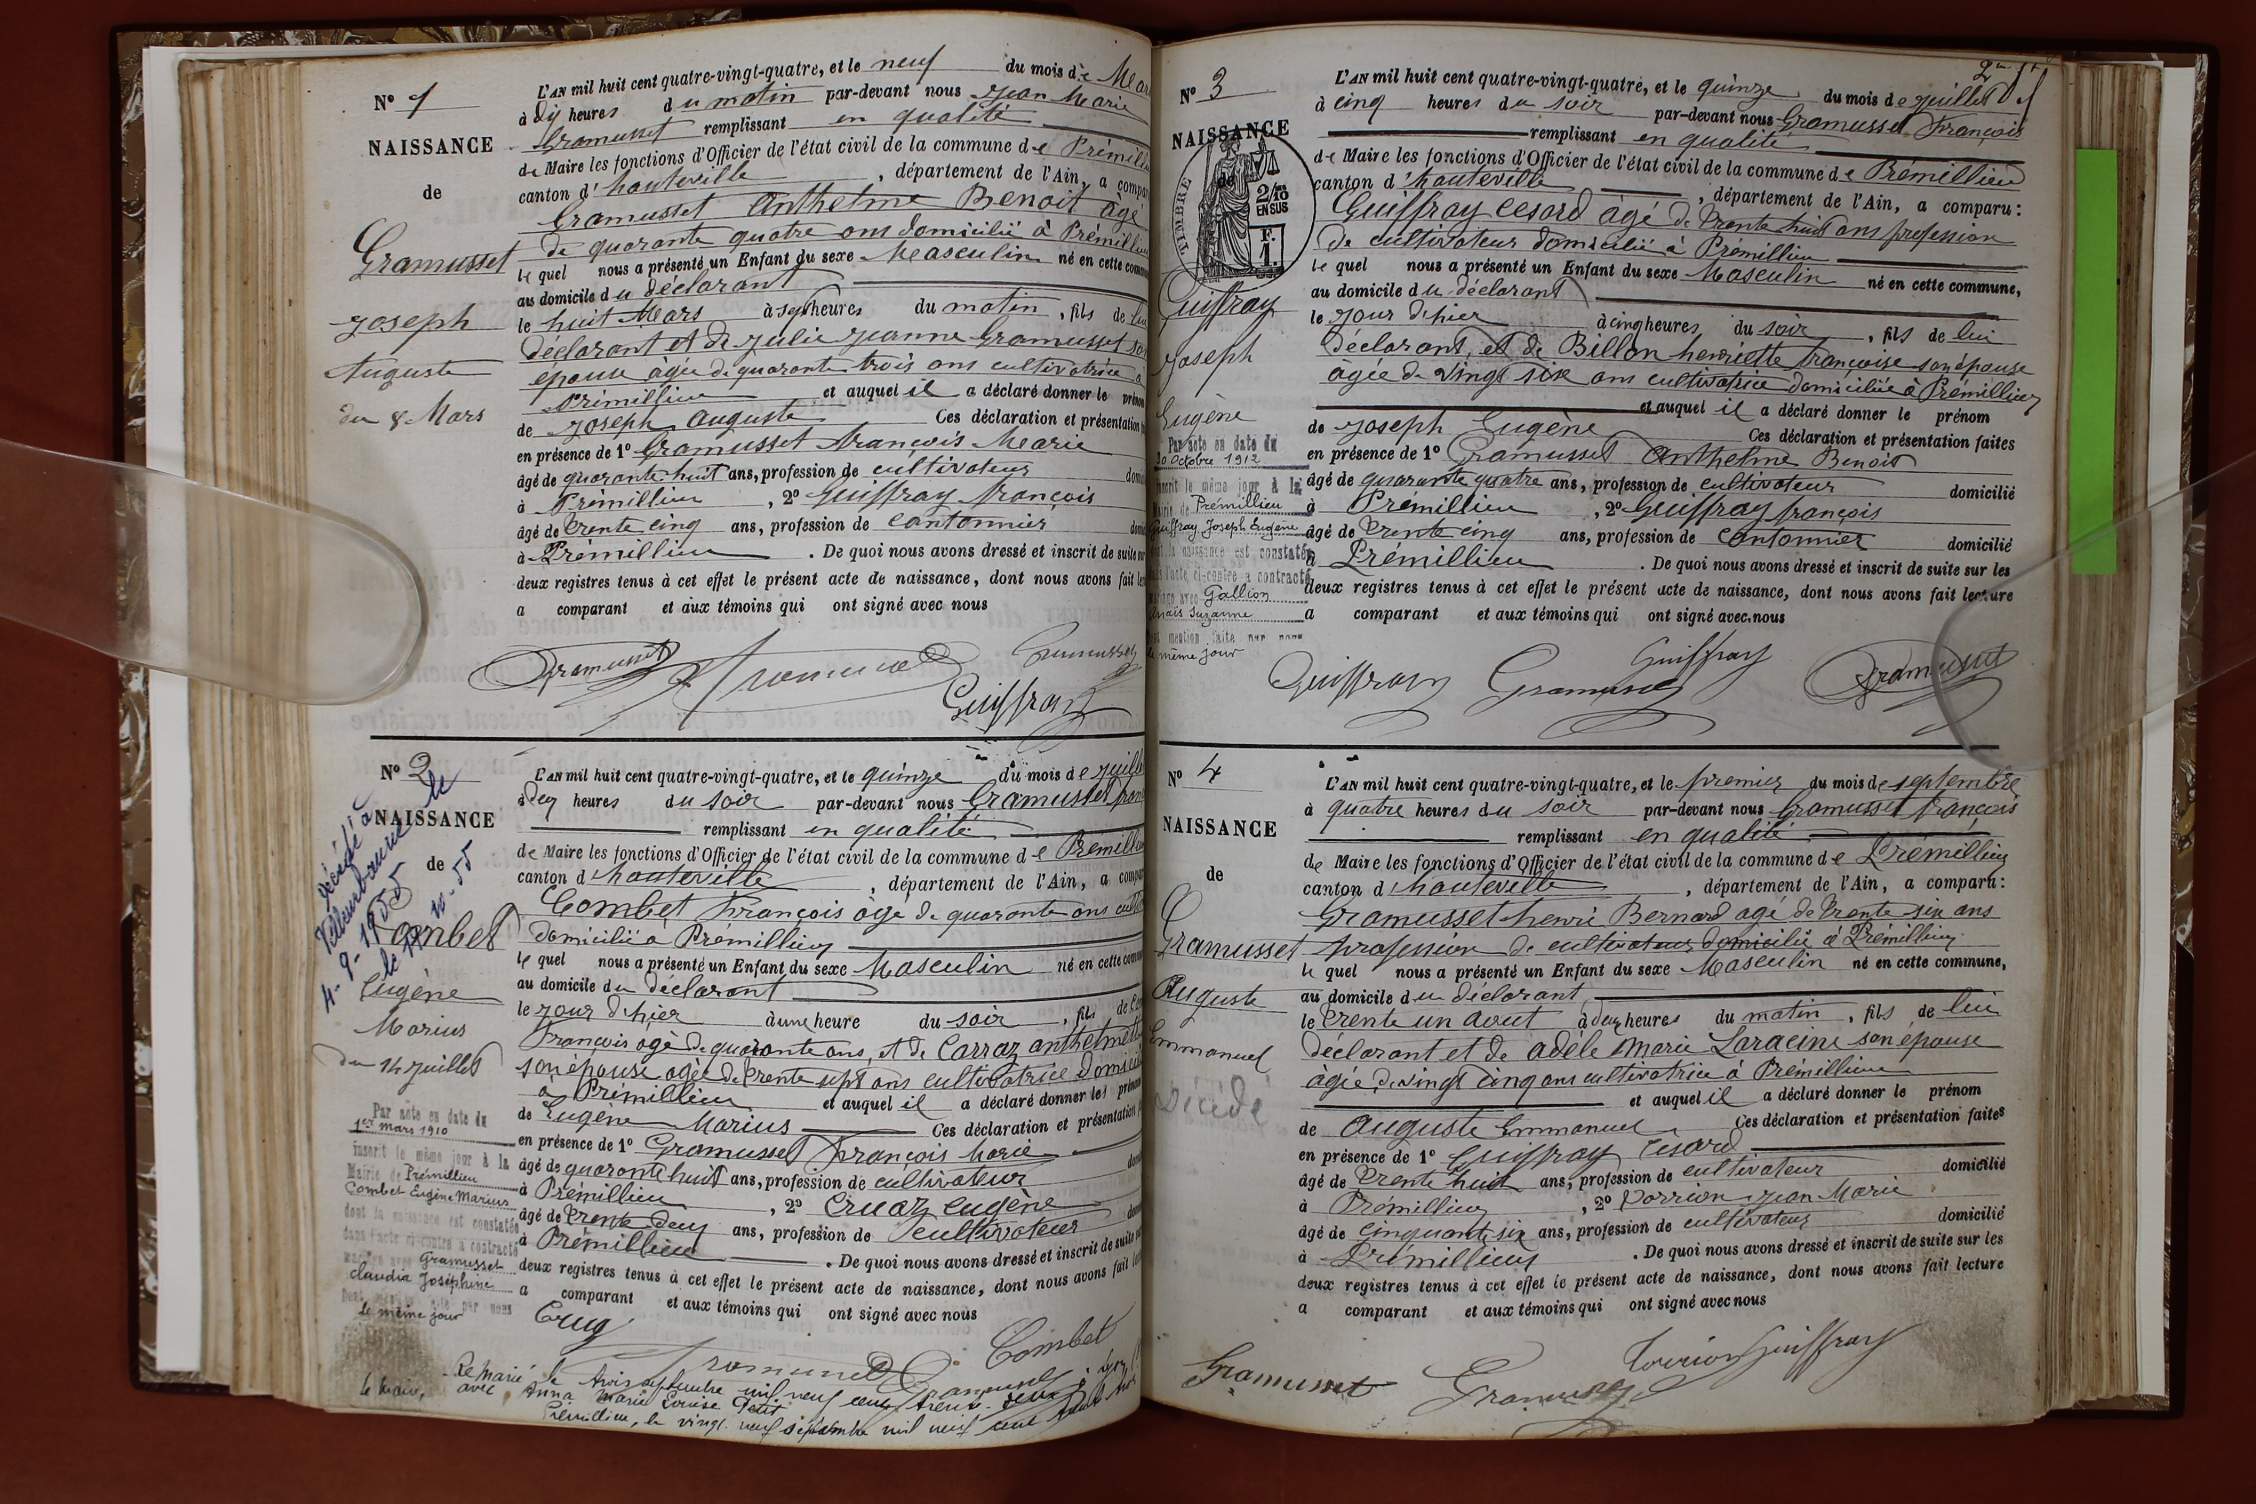 N° 1
NAISSANCE
de
Gramusset
Joseph
Auguste
du 8 Mars
L'AN mil huit cent quatre-vingt-quatre, et le neuf du mois de Mars
à dix heures du matin par-devant nous Jean Marie
Gramusset remplissant en qualité
de Maire les fonctions d'Officier de l'état civil de la commune de Prémillieu
canton d'hauteville, département de l'Ain, a comparu
Gramusset Anthelme Benoit âgé
de quarante quatre ans domicilié à Prémillieu
lequel nous a présenté un Enfant du sexe Masculin né en cette commune
au domicile du déclarant
le huit Mars à sept heures du matin, fils de lui
déclarant et de Julie Jeanne Gramusset son
épouse âgée de quarante trois ans cultivatrice à
Prémillieu et auquel il a déclaré donner le prénom
de Joseph Auguste Ces déclaration et présentation
en présence de 1° Gramusset François Marie
âgé de quarante huit ans, profession de cultivateur
à Prémillieu, 2° Guiffray françois
âgé de trente cinq ans, profession de cantonnier
à Prémillieu. De quoi nous avons dressé et inscrit de suite sur
deux registres tenus à cet effet le présent acte de naissance, dont nous avons fait
a comparant et aux témoins qui ont signé avec nous
Gramusset Gramusset
Guiffray
N° 2
NAISSANCE
de
Combet
Eugène
Marius
du 14 juillet
décédé à
Villeurbanne le
4-9-1955
Par acte en date du
1er mars 1910
inscrit le même jour à la
Mairie de Prémillieu
Combet Eugène Marius
dont la naissance est constatée
dans l'acte ci-contre a contracté
mariage avec Gramusset
Claudia Joséphine
Dont mention faite par nous
le même jour
L'AN mil huit cent quatre-vingt-quatre, et le quinze du mois de juillet
à deux heures du soir par-devant nous Gramusset
remplissant en qualité
de Maire les fonctions d'Officier de l'état civil de la commune de Prémillieu
canton d'hauteville, département de l'Ain, a comparu
Combet François âgé de quarante ans
domicilié à Prémillieu
lequel nous a présenté un Enfant du sexe Masculin né en cette commune
au domicile du déclarant
le jour d'hier à une heure du soir, fils de
François âgé de quarante ans, et de Carraz anthelmette
son épouse âgée de trente sept ans cultivatrice domiciliée
à Prémillieu et auquel il a déclaré donner les prénoms
de Eugène Marius Ces déclaration et présentation
en présence de 1° Gramusset François Marie
âgé de quarante huit ans, profession de cultivateur
à Prémillieu, 2° Cruaz Eugène
âgé de trente deux ans, profession de cultivateur
à Prémillieu. De quoi nous avons dressé et inscrit de suite
deux registres tenus à cet effet le présent acte de naissance, dont nous avons fait
a comparant et aux témoins qui ont signé avec nous
Combet
Remarié le trois septembre mil neuf cent trente
avec Anna Marie Louise Petit
Prémillieu, le vingt neuf septembre mil neuf cent
le maire,
N° 3
NAISSANCE
de
TIMBRE
2/10
EN SUS
F.
1.
Guiffray
Joseph
Eugène
Par acte en date du
30 Octobre 1912
inscrit le même jour à la
Mairie de Prémillieu
Guiffray Joseph Eugène
dont la naissance est constatée
dans l'acte ci-contre a contracté
mariage avec Gallion
Anaïs Suzanne
Dont mention faite par nous
le même jour
L'AN mil huit cent quatre-vingt-quatre, et le quinze du mois de juillet
à cinq heures du soir par-devant nous Gramusset François
remplissant en qualité
de Maire les fonctions d'Officier de l'état civil de la commune de Prémillieu
canton d'hauteville, département de l'Ain, a comparu:
Guiffray Cesard âgé de trente huit ans profession
de cultivateur domicilié à Prémillieu
lequel nous a présenté un Enfant du sexe Masculin né en cette commune,
au domicile du déclarant
le jour d'hier à cinq heures du soir, fils de lui
déclarant, et de Billon henriette françoise son épouse
âgée de vingt six ans cultivatrice domiciliée à Prémillieu
et auquel il a déclaré donner le prénom
de Joseph Eugène Ces déclaration et présentation faites
en présence de 1° Gramusset Anthelme Benoit
âgé de quarante quatre ans, profession de cultivateur domicilié
à Prémillieu, 2° Guiffray françois
âgé de trente cinq ans, profession de cantonnier domicilié
à Prémillieu. De quoi nous avons dressé et inscrit de suite sur les
deux registres tenus à cet effet le présent acte de naissance, dont nous avons fait lecture
a comparant et aux témoins qui ont signé avec nous
Guiffray Gramusset Guiffray Gramusset
N° 4
NAISSANCE
de
Gramusset
Auguste
Emmanuel
décédé
L'AN mil huit cent quatre-vingt-quatre, et le premier du mois de septembre
à quatre heures du soir par-devant nous Gramusset François
remplissant en qualité
de Maire les fonctions d'Officier de l'état civil de la commune de Prémillieu
canton d'hauteville, département de l'Ain, a comparu:
Gramusset henri Bernard agé de trente six ans
profession de cultivateur domicilié à Prémillieu
lequel nous a présenté un Enfant du sexe Masculin né en cette commune,
au domicile du déclarant
le trente un aout à deux heures du matin, fils de lui
déclarant et de adèle Marie Laracine son épouse
âgée de vingt cinq ans cultivatrice à Prémillieu
et auquel il a déclaré donner le prénom
de Auguste Emmanuel Ces déclaration et présentation faites
en présence de 1° Guiffray Cesard
âgé de trente huit ans, profession de cultivateur domicilié
à Prémillieu, 2° Jean Marie
âgé de cinquante six ans, profession de cultivateur domicilié
à Prémillieu. De quoi nous avons dressé et inscrit de suite sur les
deux registres tenus à cet effet le présent acte de naissance, dont nous avons fait lecture
a comparant et aux témoins qui ont signé avec nous
Gramusset Gramusset Guiffray